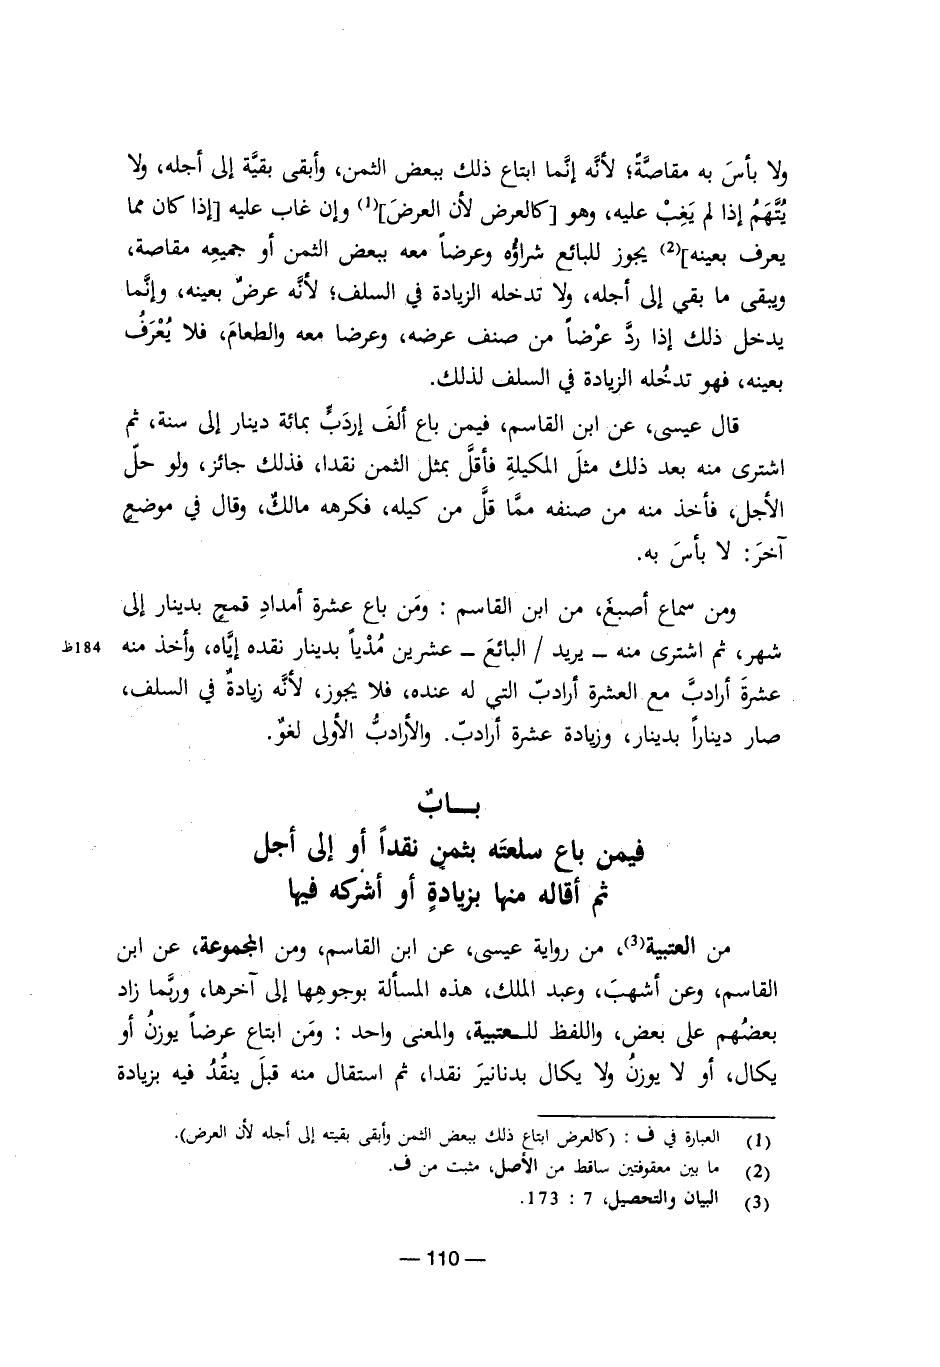 ولا بأسَ به مقاصَّةً؛ لأنَّه إنَّما ابتاع ذلك ببعض الثمن، وأبقى بقيَّة إلى أجله، ولا
يُتَّهَمُ إذا لم يَغِبْ عليه، وهو [كالعرض لأن العرضَ](1) وإن غاب عليه [إذا كان مما
يعرف بعينه](2) يجوز للبائع شراؤُه وعرضاً معه ببعض الثمن أو جميعِه مقاصة،
ويبقى ما بقي إلى أجله، ولا تدخله الزيادة في السلف؛ لأنَّه عرضٌ بعينه، وإنَّما
يدخل ذلك إذا ردَّ عرْضاً من صنف عرضه، وعرضا معه والطعامَ، فلا يُعْرَفُ
بعينه، فهو تدخُله الزيادة في السلف لذلك.
قال عيسى، عن ابن القاسم، فيمن باع ألفَ إردَبٍّ بمائة دينار إلى سنة، ثم
اشترى منه بعد ذلك مثلَ المكيلةِ فأقلَّ بمثل الثمن نقدا، فذلك جائز، ولو حلّ
الأجل، فأخذ منه من صنفه ممَّا قلَّ من كيله، فكرهه مالكٌ، وقال في موضعٍ
آخرَ: لا بأسَ به.
ومن سماع أصبغَ، من ابن القاسم : ومَن باع عشرة أمدادِ قمحٍ بدينار إلى
شهر، ثم اشترى منه – يريد / البائعَ – عشرين مُدْياً بدينار نقده إيَّاه، وأخذ منه 184ظ
عشرةَ أرادبَّ مع العشرة أرادبّ التي له عنده، فلا يجوز، لأنَّه زيادةٌ في السلف،
صار ديناراً بدينار، وزيادة عشرة أرادبّ. والأرادبُّ الأولى لغوٌ.
بــابٌ
فيمن باع سلعتَه بثمنٍ نقداً أو إلى أجل
ثم أقاله منها بزيادةٍ أو أشركه فيها
من العتبية(3)، من رواية عيسى، عن ابن القاسم، ومن المجموعة، عن ابن
القاسم، وعن أشهبَ، وعبد الملك، هذه المسألة بوجوهِها إلى آخرها، وربَّما زاد
بعضُهم على بعض، واللفظ للـعتبية، والمعنى واحد : ومَن ابتاع عرضاً يوزنُ أو
يكال، أو لا يوزنُ ولا يكال بدنانيرَ نقدا، ثم استقال منه قبلَ ينقُدُ فيه بزيادة
(1) العبارة في ف : (كالعرض ابتاع ذلك ببعض الثمن وأبقى بقيته إلى أجله لأن العرض).
(2) ما بين معقوفتين ساقط من الأصل، مثبت من ف.
(3) البيان والتحصيل، 7 : 173.
— 110 —